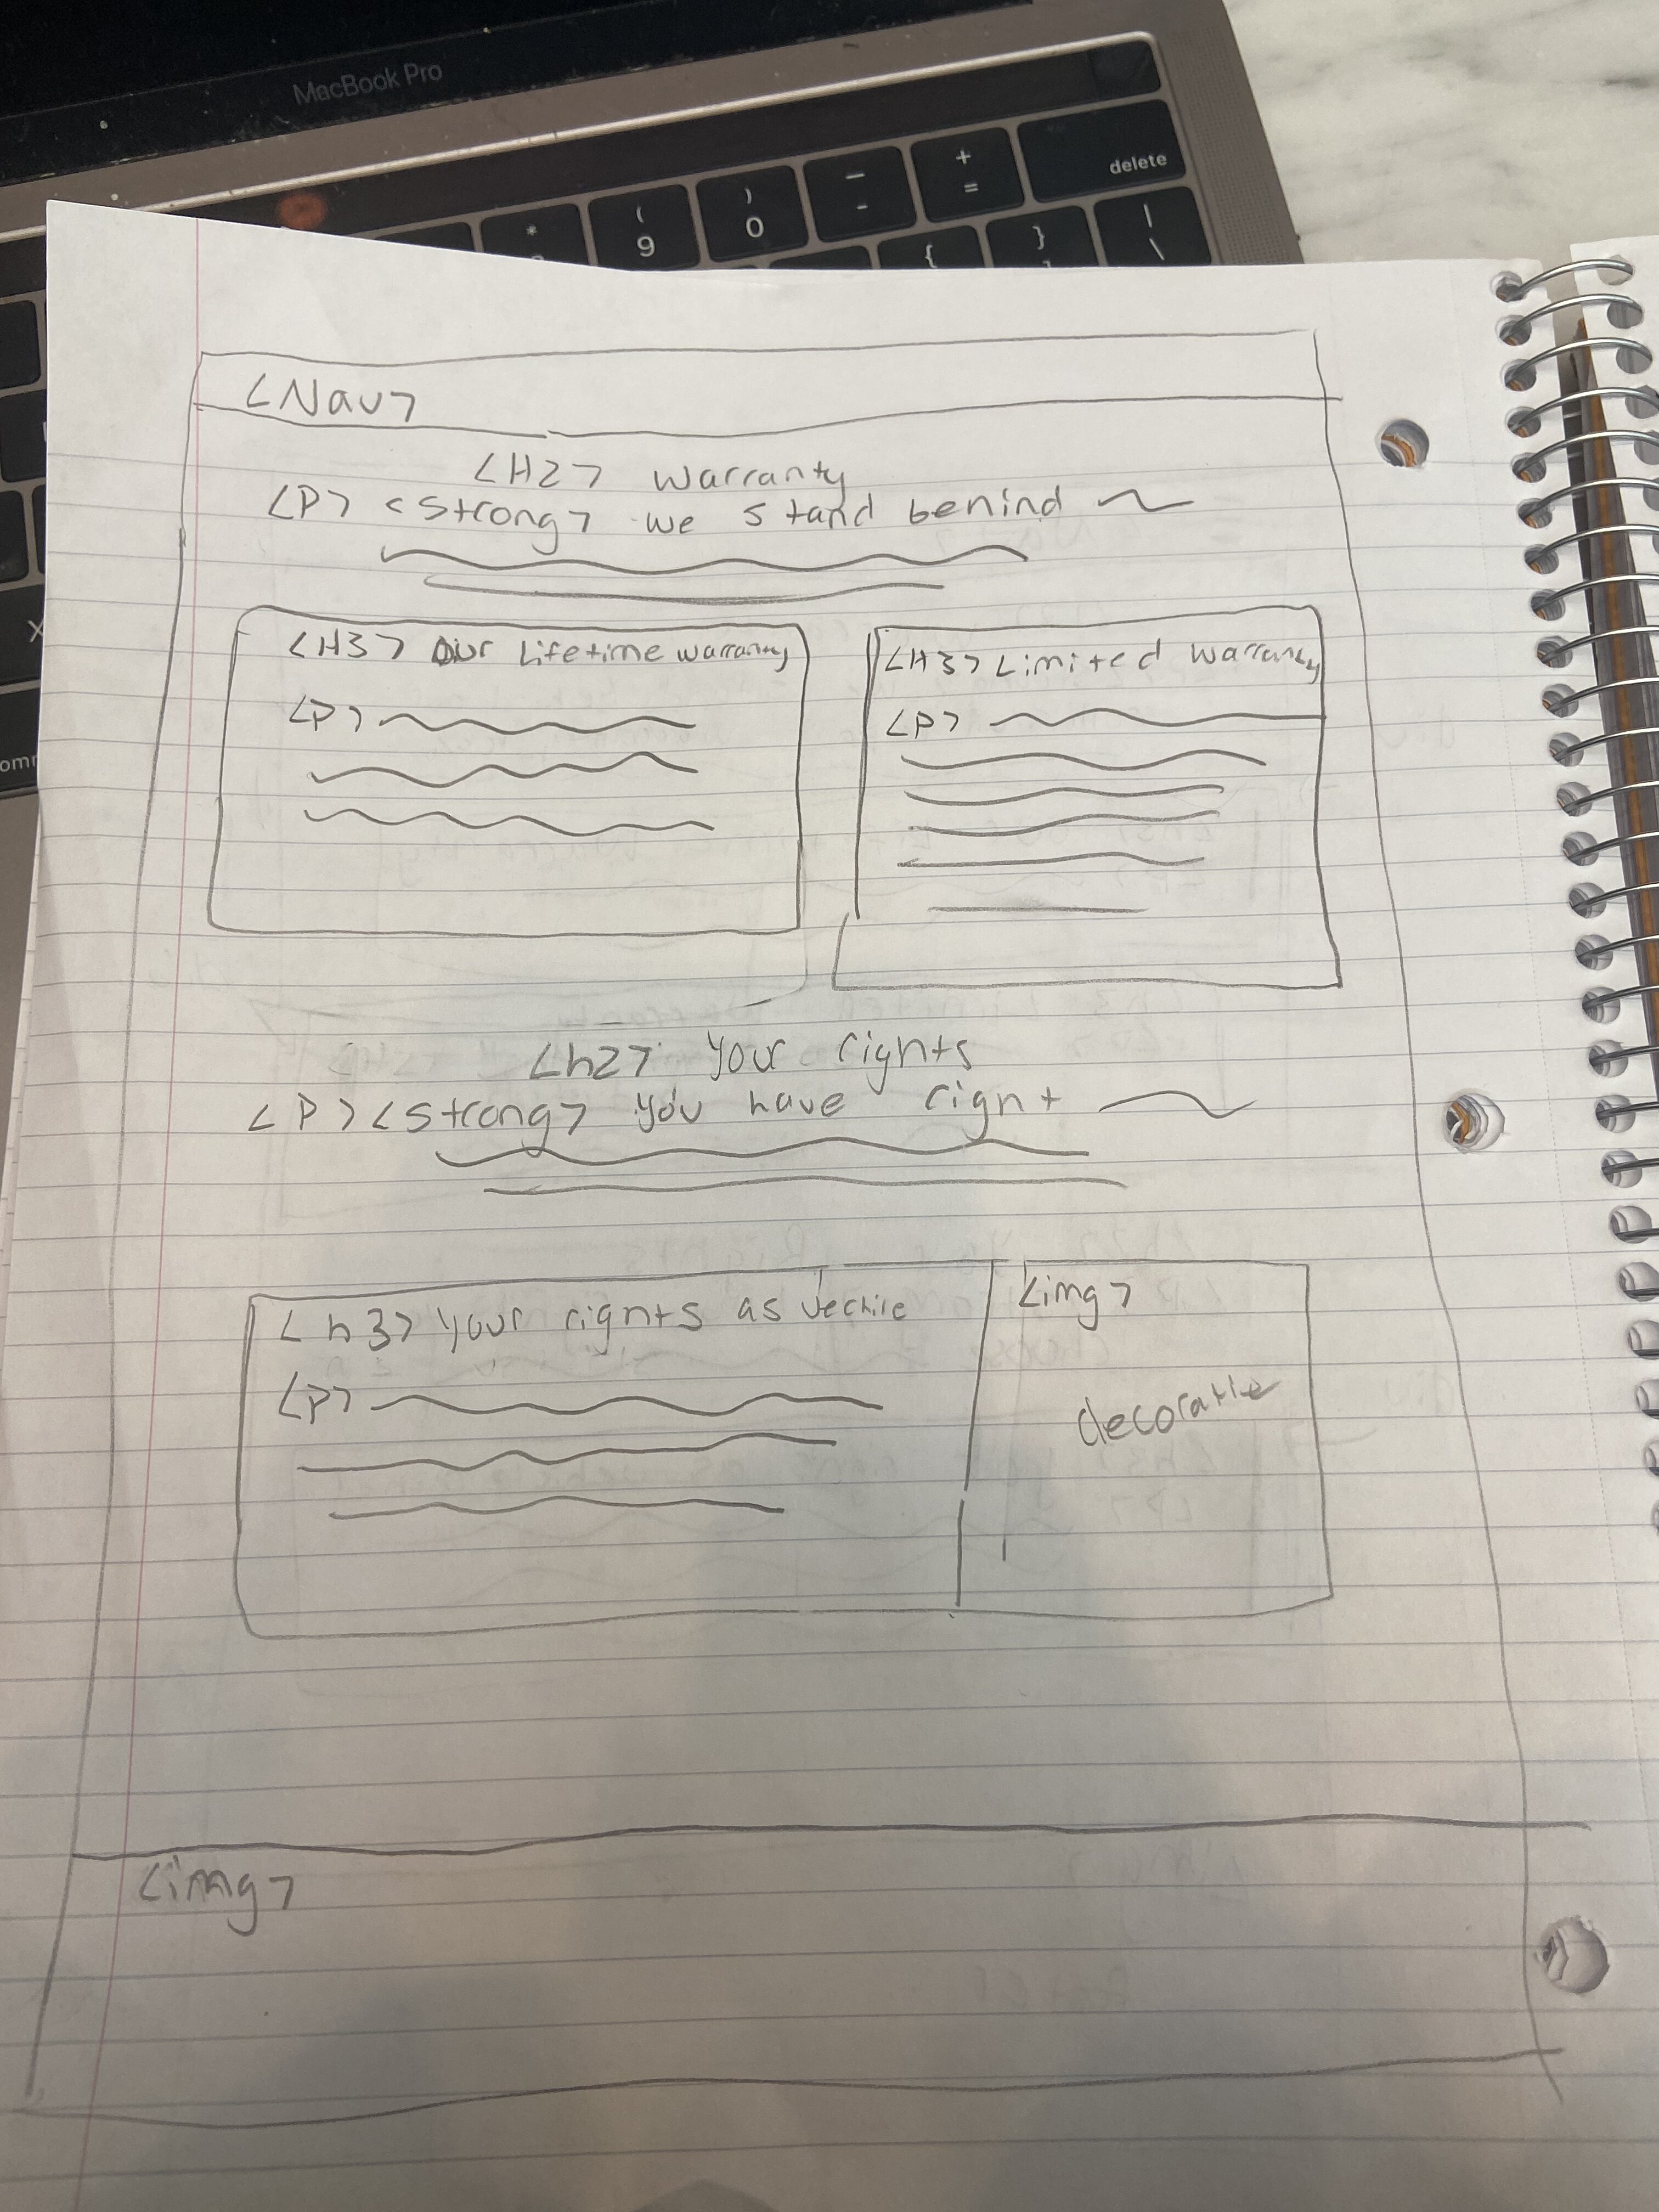 MacBook Pro
delete
+
=
—
-
)
0
(
9
*
{
}
|
\
X
<Nav>
<H2> Warranty
<P> <strong> we stand behind
<H3> Our Lifetime Warranty
<P>
<H3> Limited Warranty
<P>
<h2> Your rights
<P> <strong> you have right
<h3> your rights as vechile
<P>
<img>
decorative
<img>